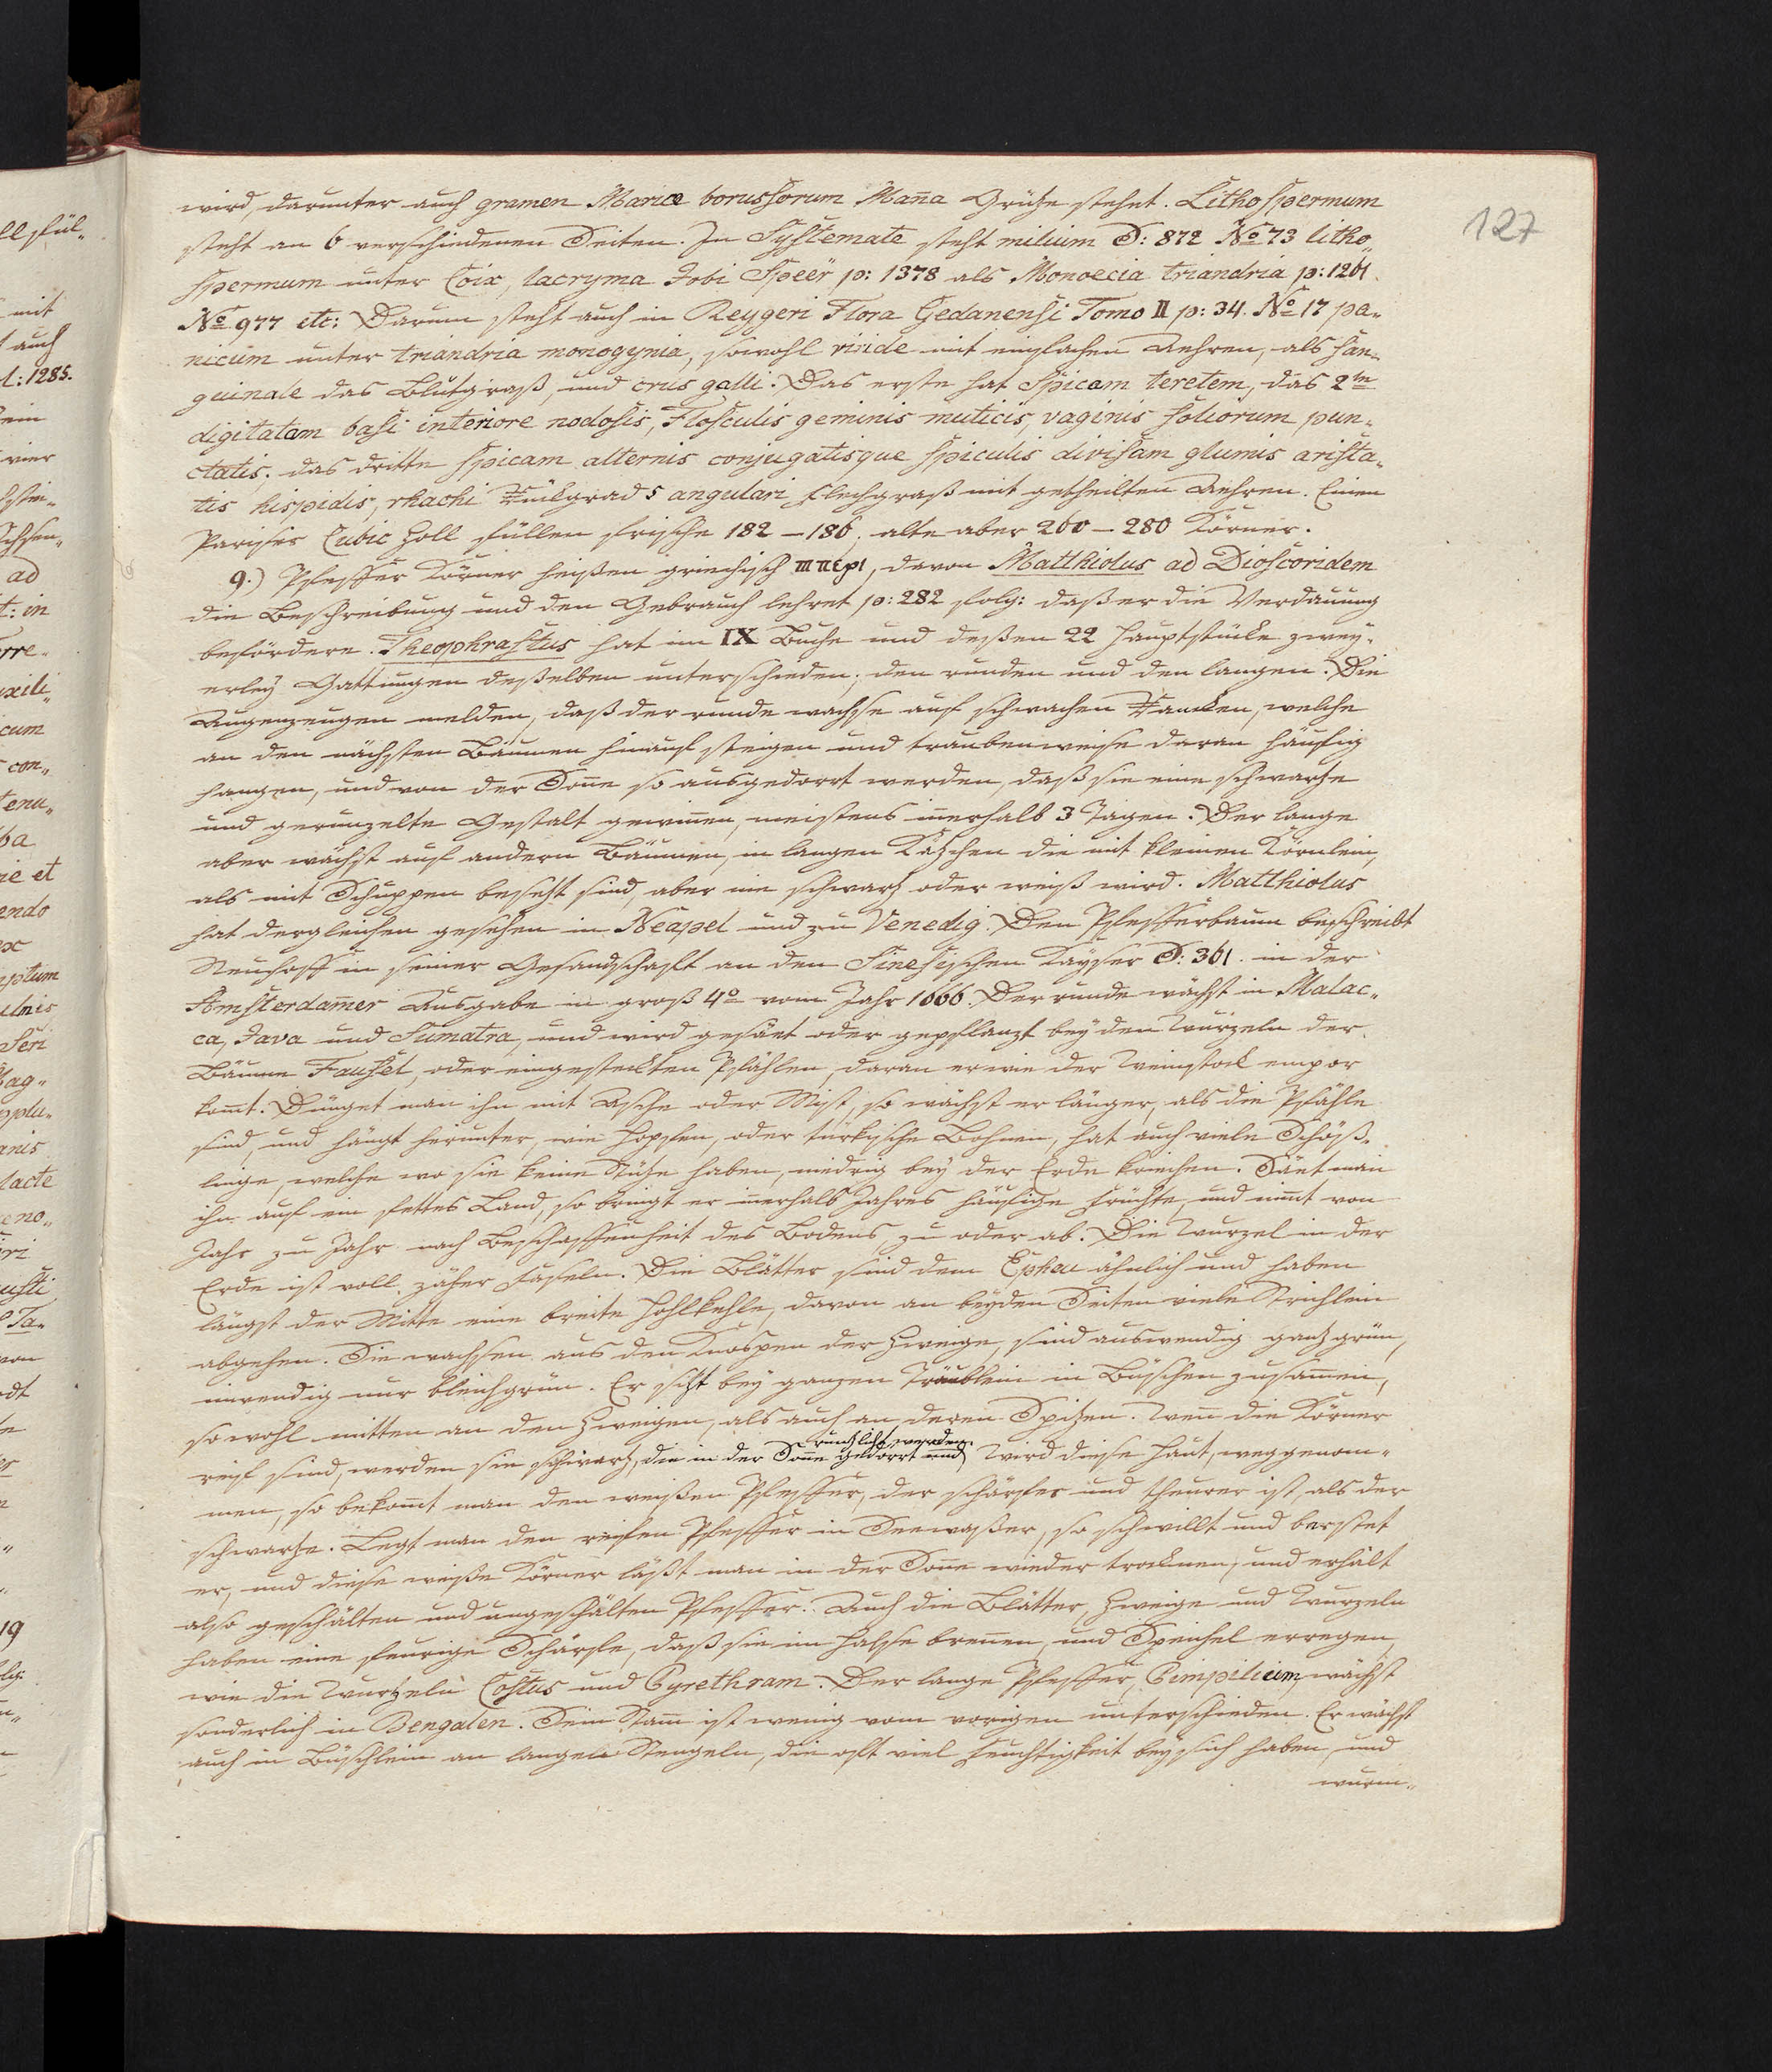 127
wird, darunter auch gramen Mariæ borusſorum Mañna Grütze stehet. Lithoſpermum
steht an 6 verschiedenen Seiten. In Syſtemate steht milium S: 872 No 73 litho„
ſpermum unter Coix, lacryma Jobi Speër p: 1378 als Monoecia triandria p: 1261.
No 977 etc: Darum steht auch in Reygeri Flora Gedanenſi Tomo II p: 34. No 17 pa„
nicum unter triandria monogynia, sowohl viride mit einfachen Aehren, als ſan„
guinale das Blutgraß, und crus galli. Das erste hat Spicam teretem, das 2te
digitatam baſi interiore nodoſis, Floſculis geminis muticis, vaginis foliorum pun„
ctatis. das dritte ſpicam alternis conjugatisque ſpiculis diviſam glumis ariſta„
tis hispidis, rhachi Rückgrad 5 angulari Flechgraß mit getheilten Aehren. Einen
Pariser Cubic Zoll füllen frische 182 – 186, alte aber 260 – 280 Körner.
9.) Pfeffer Körner heißen griechisch , davon Matthiolus ad Dioſcoridem
die Beschreibung und den Gebrauch lehret p: 282 folg: daß er die Verdauung
befördere. Theophraſtus hat im IX Buche und deßen 22 Hauptstücke zwey„
erley Gattungen deßelben unterschieden; den runden und den langen. Die
Augenzeugen melden, daß der runde wachse auf schwachen Rancken, welche
an den nächsten Bäumen hinauf steigen und traubenweise daran häufig
hangen, und von der Soñe so ausgedorrt werden, daß sie eine schwartze
und gerunzelte Gestalt gewiñen, meistens iñerhalb 3 Tagen. Der lange
aber wächst auf andern Bäumen, in langen Kätzchen die mit kleinen Körnlein,
als mit Schuppen besetzt sind, aber nie schwartz oder weiß wird. Matthiolus
hat dergleichen gesehen in Neapel und zu Venedig. Den Pfefferbaum beschreibt
Neuhoff in seiner Gesandschafft an den Sineſischen Kayser S: 361. in der
Amſterdam̃er Ausgabe in groß 4o vom Jahr 1666. Der runde wächst in Malac„
ca, Java und Sumatra, und wird gesäet oder gepflanzt bey den Wurzeln der
Bäume Fauſel, oder eingesteckten Pfählen, daran er wie der Weinstock empor
kom̃t. Dünget man ihn mit Asche oder Mist, so wächst er länger, als die Pfähle
sind, und hängt herunter, wie Hopfen, oder türkische Bohnen, hat auch viele Schöß„
linge, welche wo sie keine Stütze haben, niedrig bey der Erde kriechen. Säet man
ihn auf ein fettes Land, so bringt er iñerhalb Jahres häufige Früchte, und nim̃t von
Jahr zu Jahr nach Beschaffenheit des Bodens zu oder ab. Die Wurzel in der
Erde ist voll zäher Faseln. Die Blätter sind dem Epheu ähnlich und haben
längst der Mitte eine breite Hohlkehle, davon an beyden Seiten viele Strichlein
abgehen. Sie wachsen aus den Knospen der Zweige, sind auswendig gantz grün,
inwendig nur bleichgrün. Er sitzt bey ganzen Träublein in Büschen zusam̃en,
so wohl mitten an den Zweigen, als auch an deren Spitzen. Weñ die Körner
reif sind, werden sie schwartz, die in der Soñe gedorrt und runtzlicht werden. Wird diese Haut, weggenom„
men, so bekom̃t man den weißen Pfeffer, der schärfer und theurer ist, als der
schwartze. Legt man den reifen Pfeffer in Seewaßer, so schwillt und berstet
er, und diese weiße Körner läßt man in der Soñe wieder trocknen, und erhält
also geschälten und ungeschälten Pfeffer. Auch die Blätter, Zweige und Wurzeln
haben eine feurige Schärfe, daß sie im Halse breñen, und Speichel erregen,
wie die Wurtzeln Coſtus und Pyrethram. Der lange Pfeffer, Pimpilium, wächst
sonderlich in Bengalen. Sein Stam̃ ist wenig vom vorigen unterschieden. Er wächst
auch in Büschlein an langen Stengeln, die oft viel Feuchtigkeit bey sich haben, und
wurm„